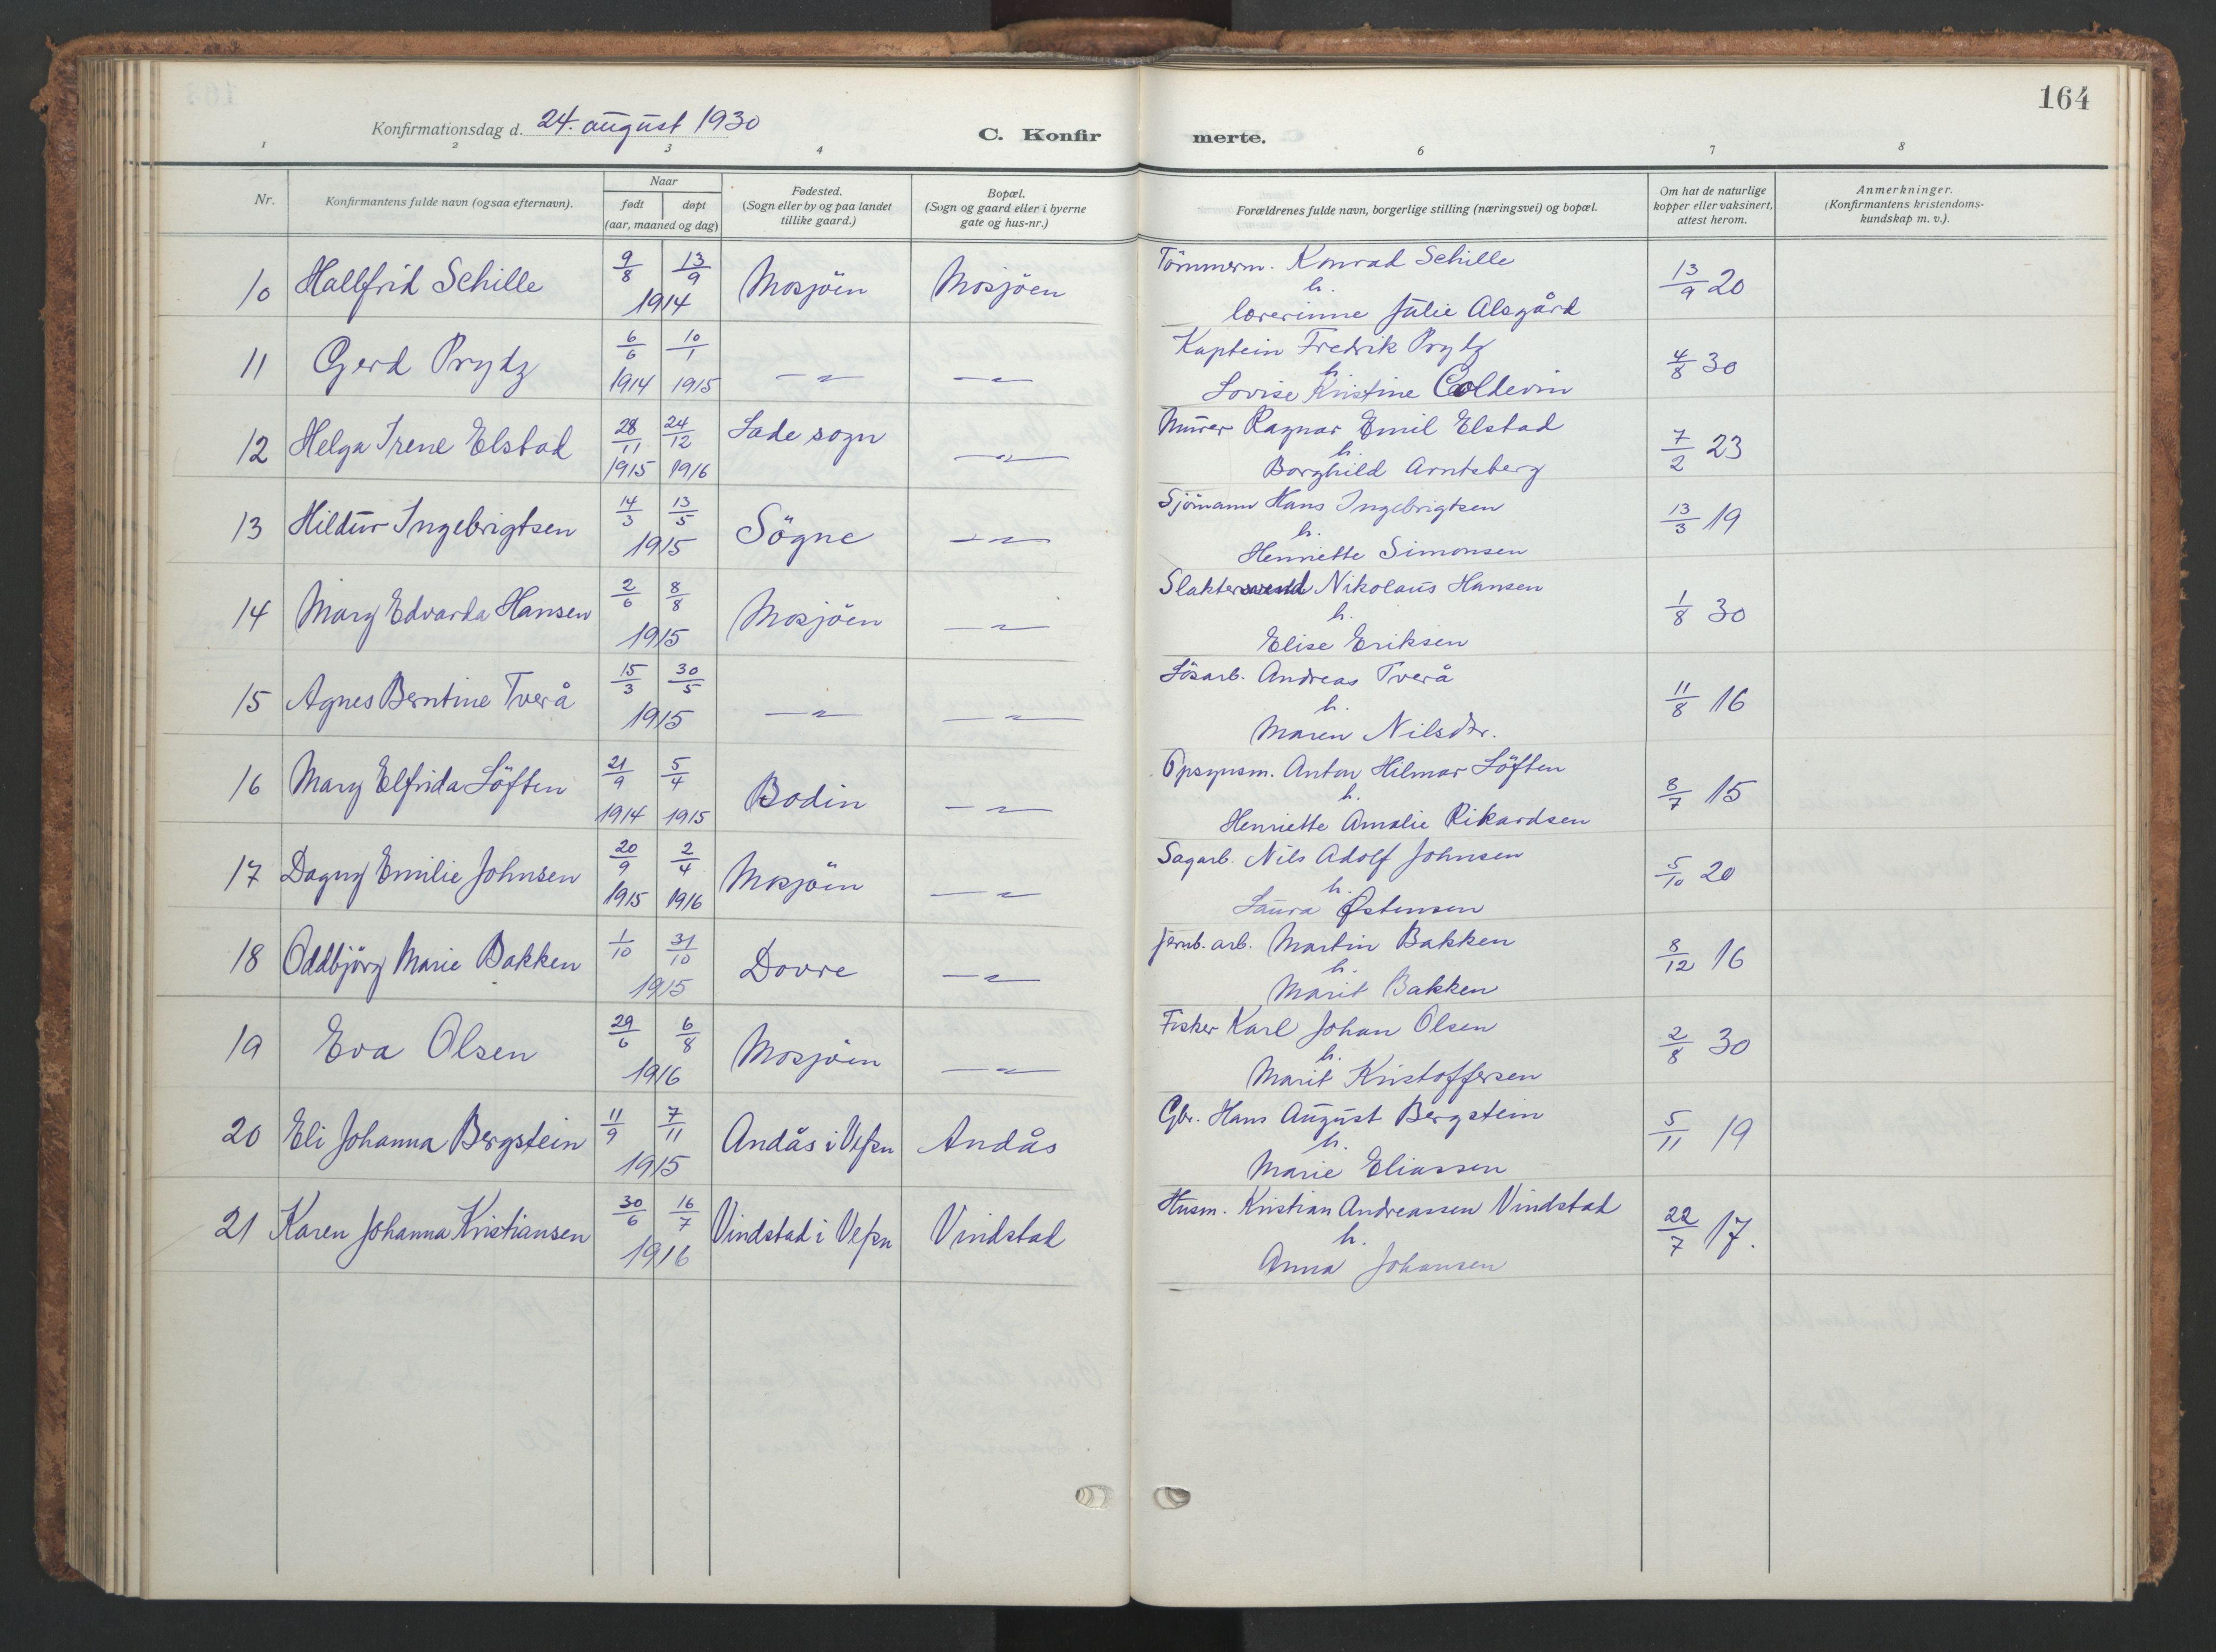 164
Konfirmationsdag d. 24. august 1930
C. Konfir merte.
1 2 3 4 6 7 8
Nr.
Konfirmantens fulde navn (ogsaa efternavn).
Naar
født døpt
(aar, maaned og dag)
Fødested.
(Sogn eller by og paa landet
tillike gaard.)
Bopæl.
(Sogn og gaard eller i byerne
gate og hus-nr.)
Forældrenes fulde navn, borgerlige stilling (næringsvei) og bopæl.
Om hat de naturlige
kopper eller vaksinert,
attest herom.
Anmerkninger.
(Konfirmantens kristendoms-
kundskap m. v.).
10 Hallfrid Schille 9/8 13/9 1914 Mosjöen Mosjöen
Tömmerm. Konrad Schille
h.
lærerinne Julie Alsgård
13/9 20
11 Gerd Prydz 6/6 1914 10/1 1915 —〃— —〃—
Kaptein Fredrik Prydz
h.
Lovise Kristine Coldevin
4/8 30
12 Helga Irene Elstad 28/11 1915 24/12 1916 Lade sogn —〃—
Murer Ragnar Emil Elstad
h.
Borghild Arntsberg
7/2 23
13 Hildur Ingebrigtsen 14/3 13/5 1915 Sögne —〃—
Sjömann Hans Ingebrigtsen
h.
Henriette Simonsen
13/3 19
14 Mary Edvarda Hansen 2/6 8/8 1915 Mosjöen —〃—
Slaktersvend Nikolaus Hansen
h.
Elise Eriksen
1/8 30
15 Agnes Berntine Tverå 15/3 30/5 1915 —〃— —〃—
Lösarb. Andreas Tverå
h.
Maren Nilsdtr.
11/8 16
16 Mary Elfrida Löften 21/9 1914 5/4 1915 Bodin —〃—
Opsynsm. Anton Hilmar Löften
h.
Henriette Amalie Rikardsen
8/7 15
17 Dagny Emilie Johnsen 20/9 1915 2/4 1916 Mosjöen —〃—
Sagarb. Nils Adolf Johnsen
h.
Laura Østensen
5/10 20
18 Oddbjörg Marie Bakken 1/10 31/10 1915 Dovre —〃—
Jernb. arb. Martin Bakken
h.
Marit Bakken
8/12 16
19 Eva Olsen 29/6 6/8 1916 Mosjöen —〃—
Fisker Karl Johan Olsen
h.
Marit Kristoffersen
2/8 30
20 Eli Johanna Bergstein 11/9 7/11 1915 Andås i Vefsn Andås
Gbr. Hans August Bergstein
h.
Marie Eliassen
5/11 19
21 Karen Johanna Kristiansen 30/6 16/7 1916 Vindstad i Vefsn Vindstad
Husm. Kristian Andreassen Vindstad
h.
Anna Johansen
22/7 17.